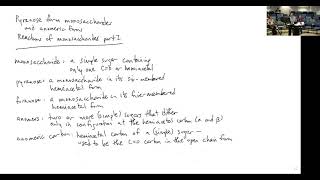 Pyranose form monosaccharides
and anomeric forms
Reactions of monosaccharides part I
monosaccharide: a simple sugar containing
only one C=O or hemiacetal
pyranose: a monosaccharide in its six-membered
hemiacetal form
furanose: a monosaccharide in its five-membered
hemiacetal form
anomers: two or more (simple) sugars that differ
only in configuration at the hemiacetal carbon (α and β)
anomeric carbon: hemiacetal carbon of a (simple) sugar —
used to be the C=O carbon in the open chain form